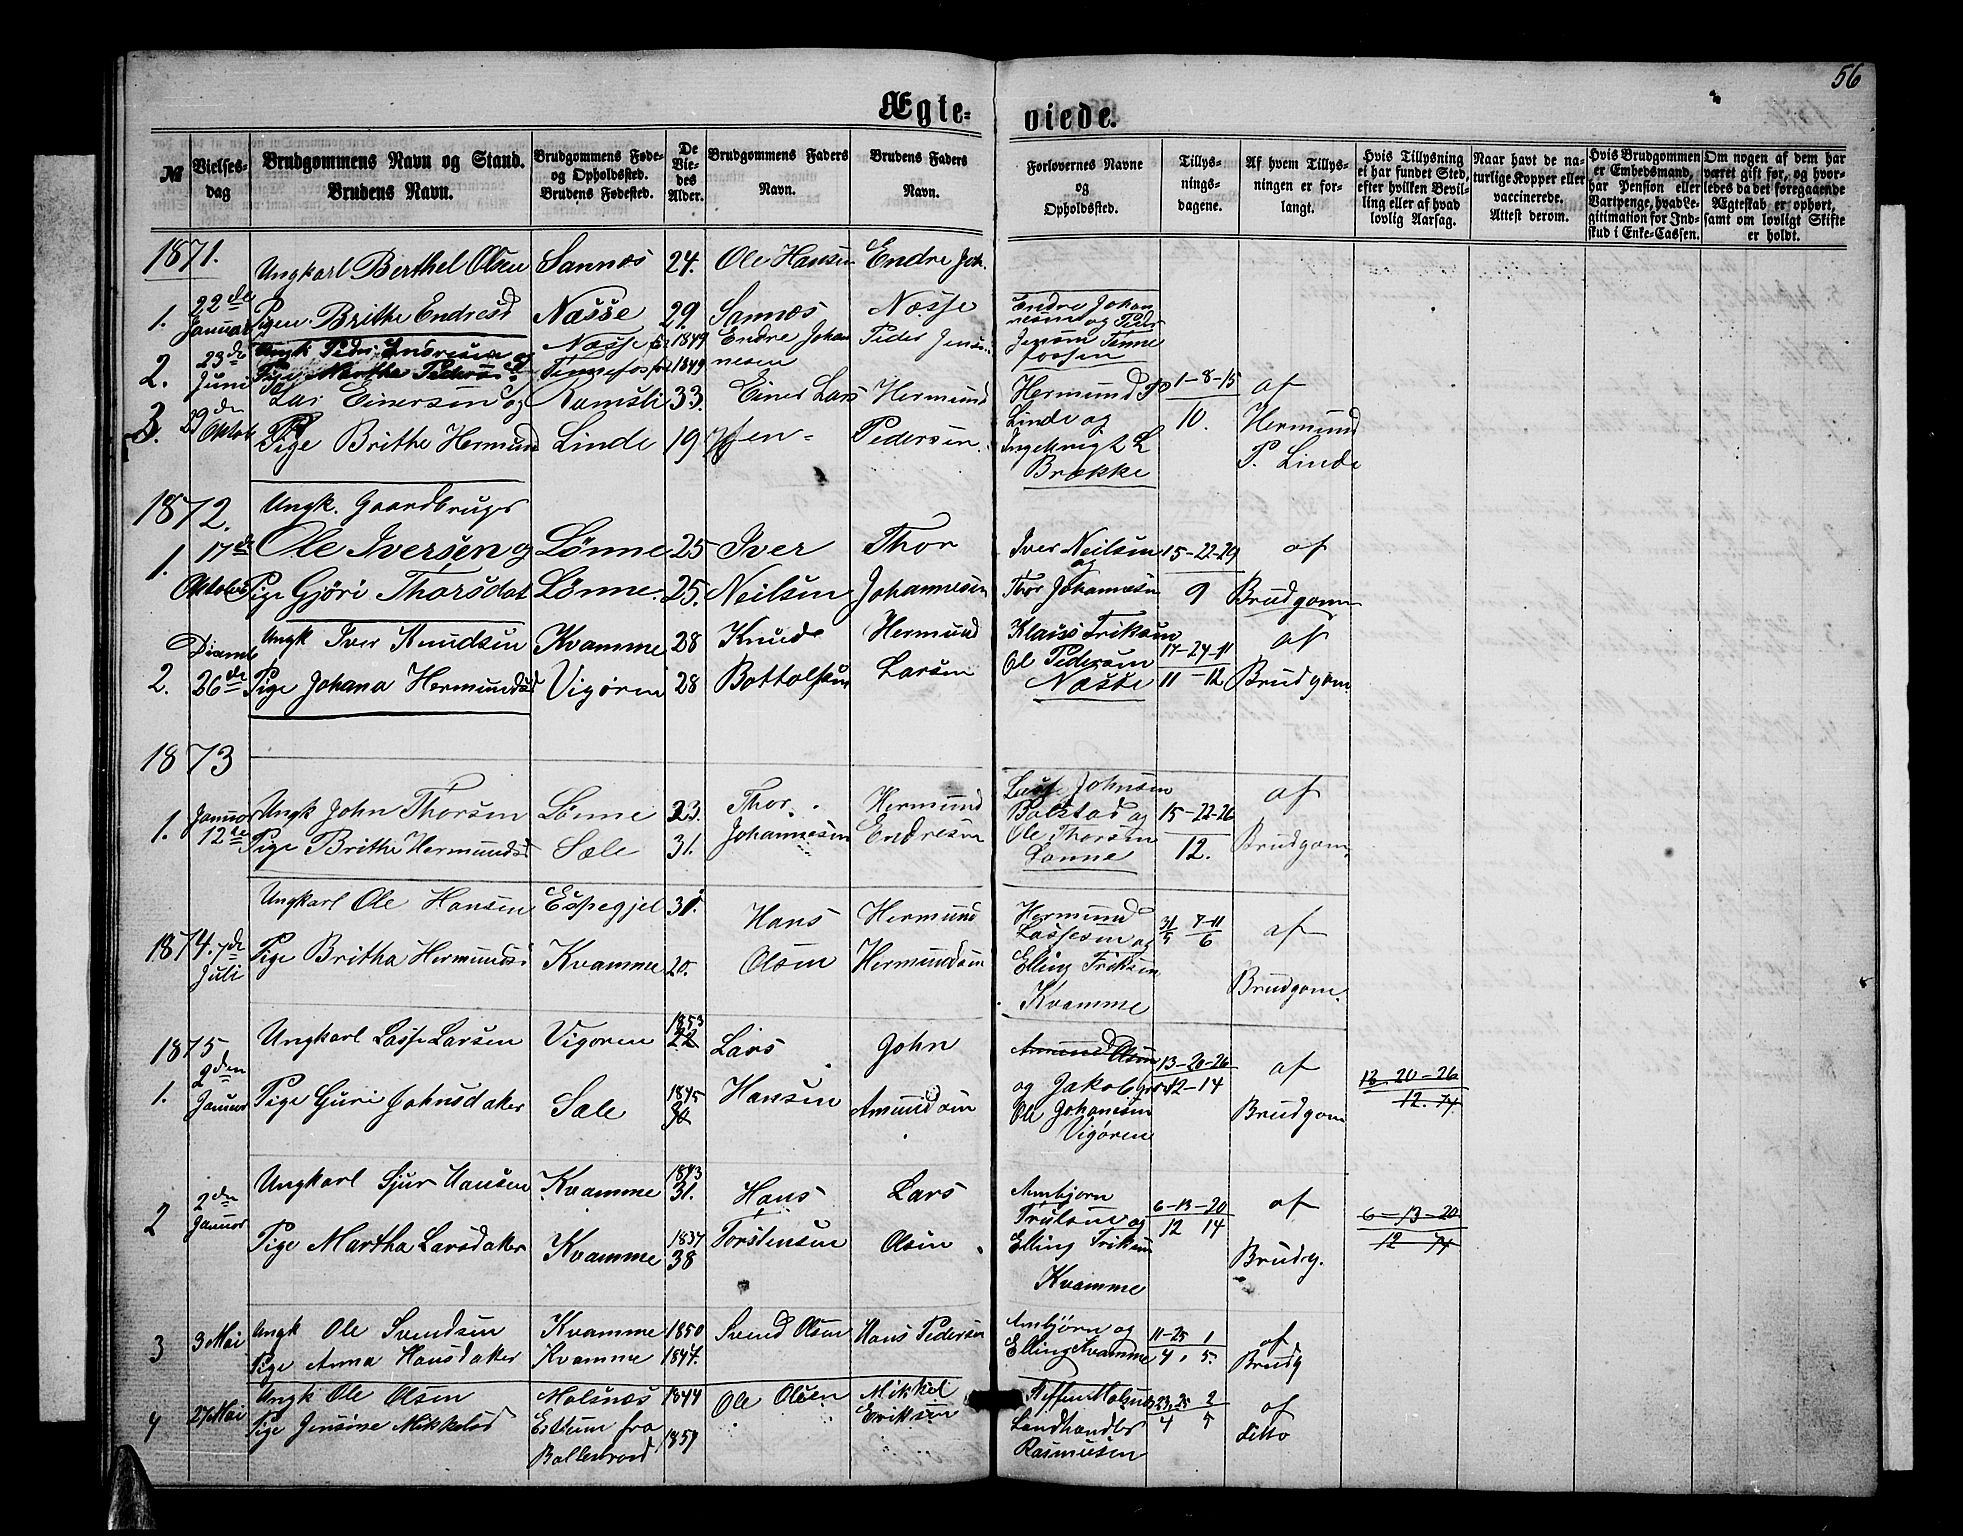 56
Ægte-
viede.
№
Vielses-
dag
Brudgommens Navn og Stand.
Brudens Navn.
Brudgommens Føde-
og Opholdssted.
Brudens Fødested.
De
Vie-
des
Alder.
Brudgommens Faders
Navn.
Brudens Faders
Navn.
Forlovernes Navne
og
Opholdssted.
Tillys-
nings-
dagene.
Af hvem Tillys-
ningen er for-
langt.
Hvis Tillysning
ei har fundet Sted,
efter hvilken Bevil-
ling eller af hvad
lovlig Aarsag.
Naar havt de na-
turlige Kopper eller
vaccinerede.
Attest derom.
Hvis Brudgommen
er Embedsmand,
har Pension eller
Vartpenge, hvad Le-
gitimation for Ind-
skud i Enke-Cassen.
Om nogen af dem har
været gift før, og hvor-
ledes da det foregaaende
Ægteskab er ophørt,
samt om lovligt Skifte
er holdt.
1871.
Ungkarl Berthel Olsen Sannæs 24. Ole Hansen Endre Joh.
1. 22de Januar Pigen Brithe Endresd Næsse 29. Sannæs Næsse
Endre Johan
nesen og Peder
Jensen Tenne
fossen
2. 23de Juni Ungk Peder Endresen og Næsse 1849 Endre Johan Peder Jens
Pige Martha Pedersd Tennefos 1849 nesen
3. 29de Oktob Lar Einersen og Ramsli 33. Einer Lars Hermund
Pige Brithe Hermund Linde 19 sen Pedersen.
Hermund P
Linde og
Ingebrigt L
Brække
1-8-15
10.
af
Hermund
P. Linde
1872.
Ungk. Gaardbruger
1. 17de Ole Iversen og Lønne 25 Iver Thor
Oktober Pige Gjøri Thorsdat Lønne. 25. Neilsen Johannesen
Iver Neilsen
og
Thor Johannesen
15-22-29
9
af
Brudgom
2. Decemb 26de Ungk Iver Knudsen Kvamme 28 Knud Hermund
Pige Johana Hermundsd Vigøren 28 Bottolfsen Larsen
Klaus Eriksen
Ol Pedersen
Næsse
17-24-11
11-12
af
Brudgom.
1873
1. Januar 12te Ungk John Thorsen Lønne 23. Thor Hermund
Pige Brithe Hermundsd Sæle 31. Johannesen Endresen
Johnsen
Bolstad og
Ole Thorsen
Lønne
15-22-26
12.
af
Brudgom.
Ungkarl Ole Hansen Espegjel 31. Hans Hermund
1874. 7de Juli Pige Britha Hermunds Kvamme 20. Olsen Hermundsen
Hermund
Lassesen og
Elling Eriksen
Kvamme
31 7-11
5 6
af
Brudgom.
1875
1. 2den Januar Ungkarl Lasse Larsen Vigøren 1853 22 Lars John
Pige Guri Johnsdater Sæle 1845 30 Hansen Amundsen
Amund Olsen
og Jakob
Ole Johanesen
Vigøren
13-20-26
12-14
af
Brudgom
13-20-26
12.74
2 2den Januar Ungkarl Sjur Hansen Kvamme 1843 31. Hans Lars
Pige Martha Larsdater Kvamme 1837 38 Torstensen Olsen
Ambjørn
Trulsen og
Elling Eriksen
Kvamme
6-13-20
12 14
af
Brudg.
6-13-20
12 74
3 3 Mai Ungk Ole Svendsen Kvamme 1850 Svend Olsen Hans Pedersen
Pige Anna Hansdater Kvamme 1847.
Ambjørn og
Elling Kvamme
11-25 1
4. 5.
af
Brudg
4 27 Mai Ungk Ole Olsen Malsnæs 1844 Ole Olsen Mikkel
Pige Jensine Mikkelsd fra 1851 Eriksen
Landhandler
Rasmussen
23-25 2
4 5
af
ditto